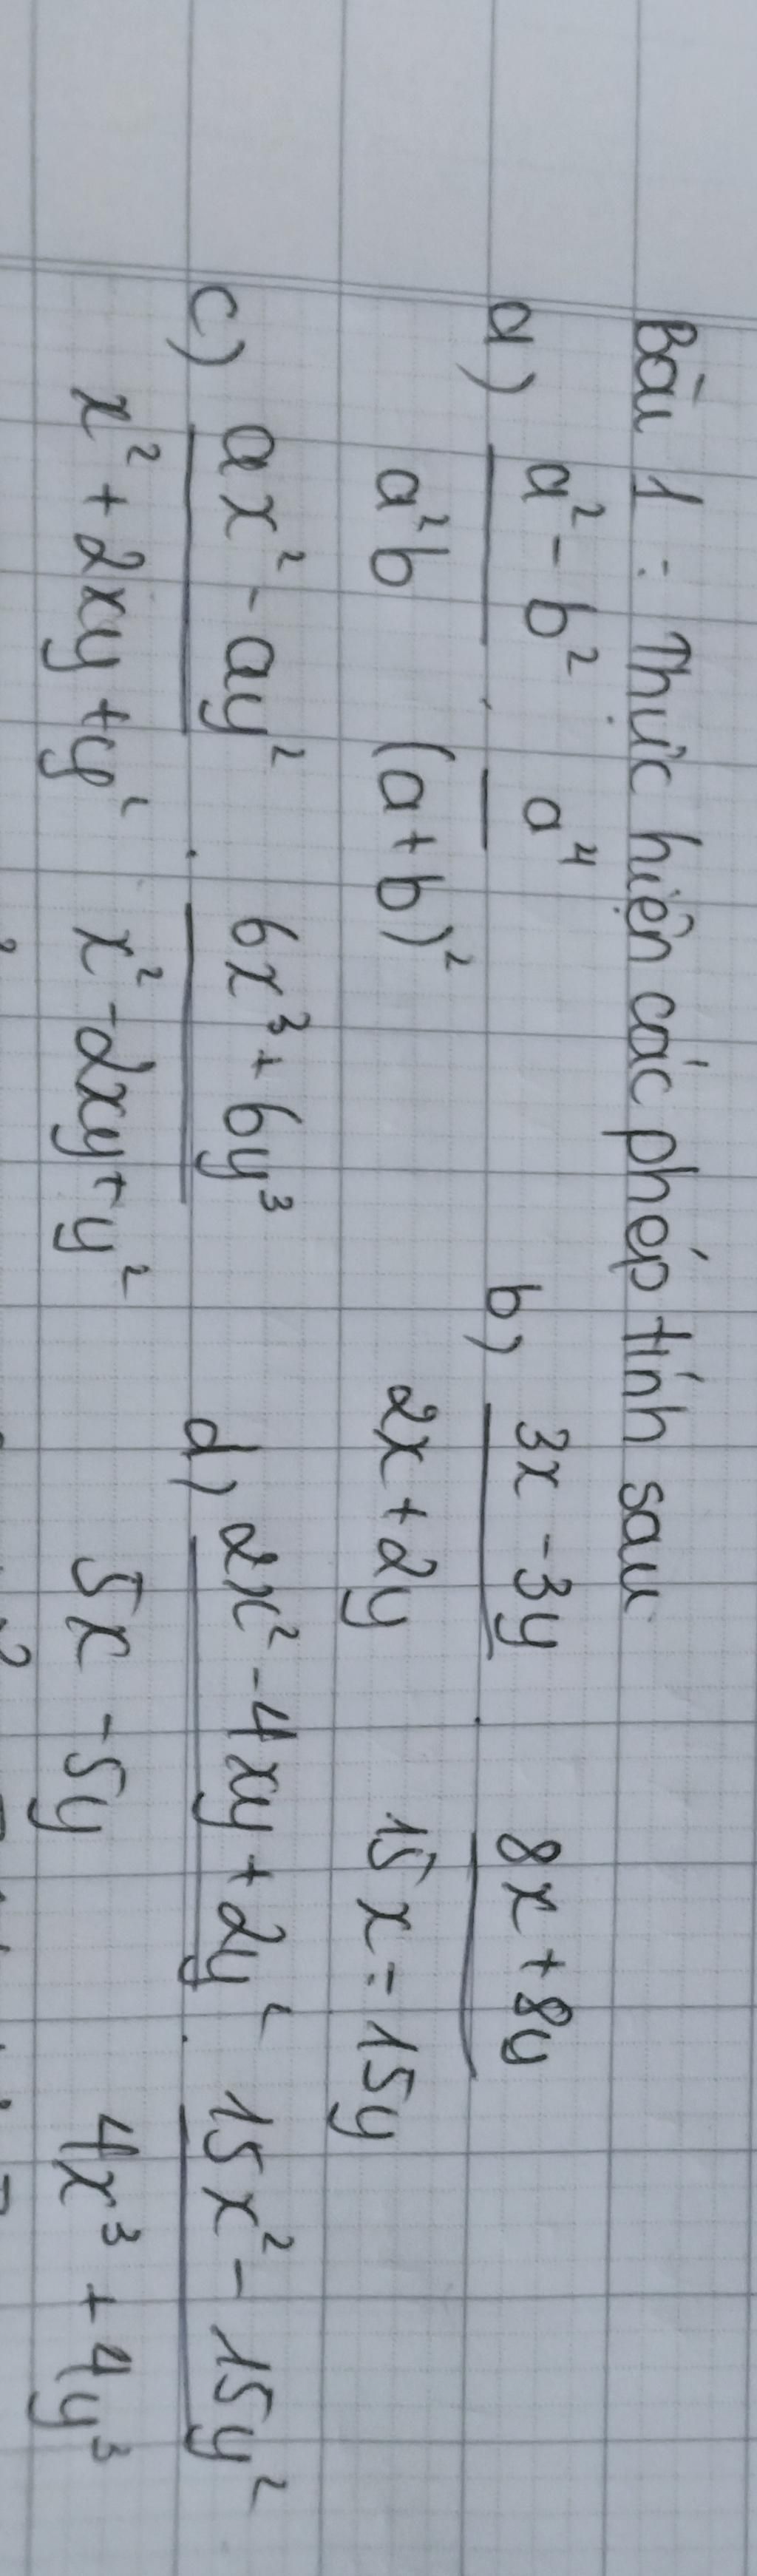 Bài 1 : Thực hiện các phép tính sau
a) (a² - b²)/(a²b) . a⁴/(a+b)² b) (3x - 3y)/(2x + 2y) . (8x + 8y)/(15x - 15y)
c) (ax² - ay²)/(x² + 2xy + y²) . (6x³ + 6y³)/(x² - 2xy + y²) d) (2x² - 4xy + 2y²)/(5x - 5y) . (15x² - 15y²)/(4x³ + 4y³)